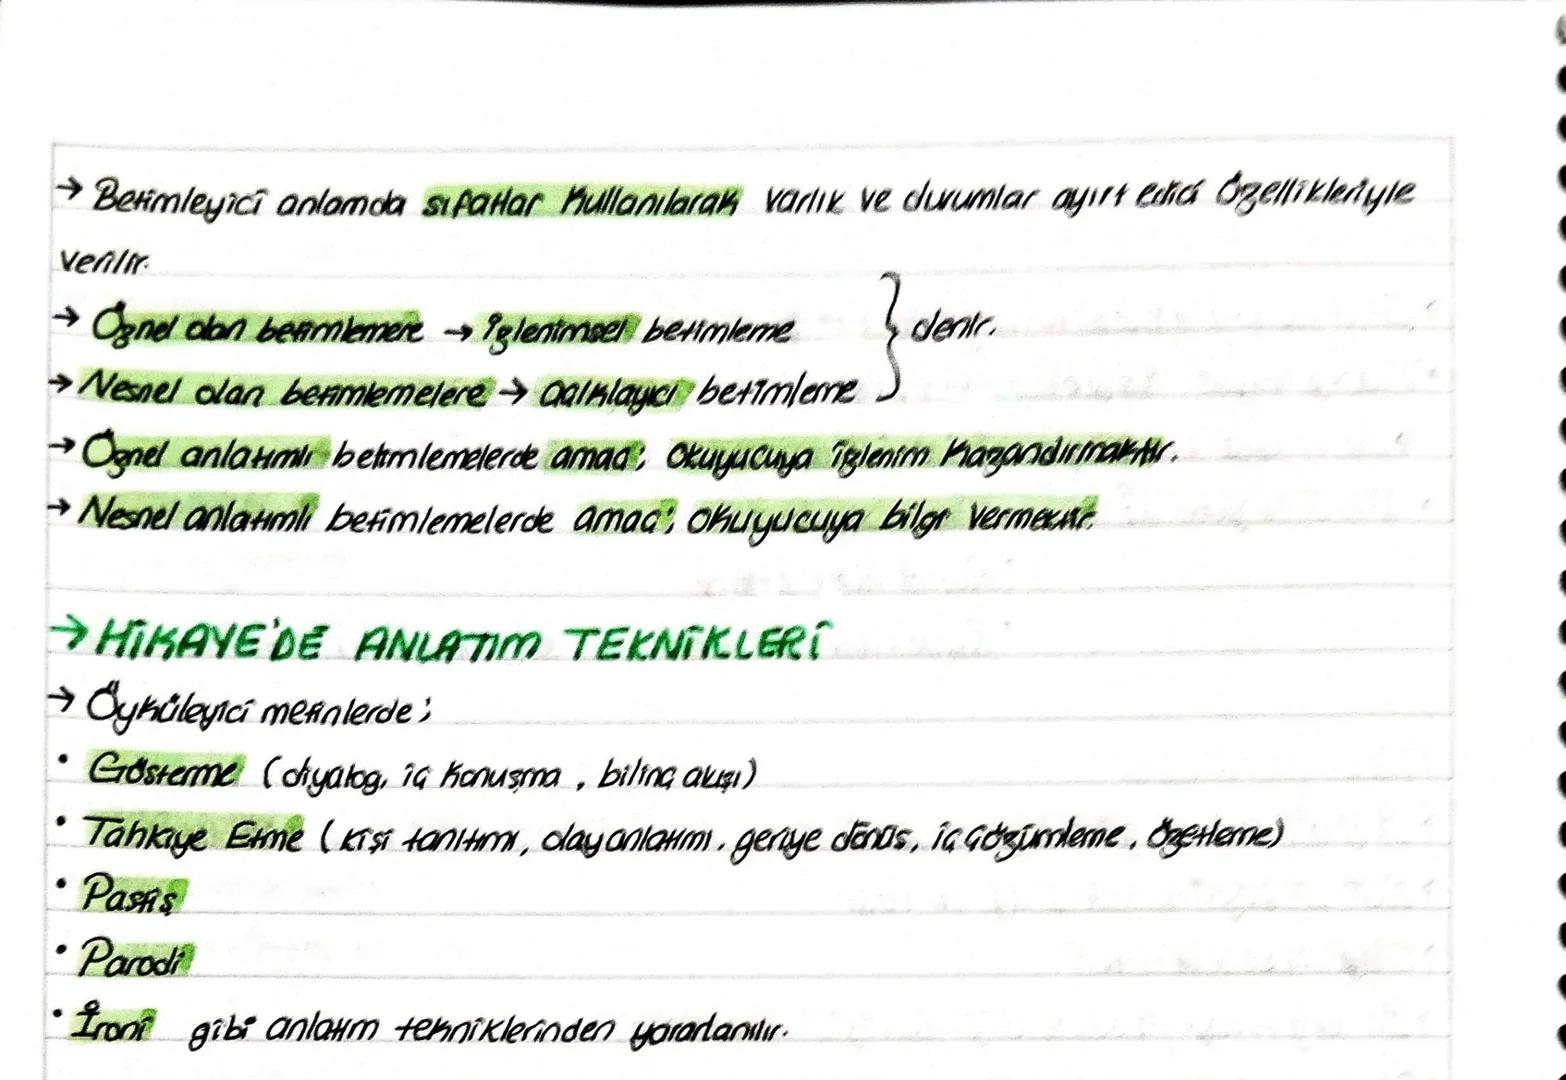 → Betimleyici anlamda sıfatlar kullanılarak varlık ve durumlar ayırt edici özellikleriyle
verilir.
→ Öznel olan betimlemere → izlenimsel betimleme } denir.
→ Nesnel olan betimlemelere → açıklayıcı betimleme
→ Öznel anlatımlı betimlemelerde amaç; okuyucuya izlenim kazandırmaktır.
→ Nesnel anlatımlı betimlemelerde amaç; okuyucuya bilgi vermektir.
→ HİKAYE'DE ANLATIM TEKNİKLERİ
→ Öyküleyici metinlerde;
• Gösterme (diyalog, iç konuşma, bilinç akışı)
• Tahkiye Etme (kişi tanıtımı, olay anlatımı, geriye dönüş, iç çözümleme, özetleme)
• Pastiş
• Parodi
• İroni gibi anlatım tekniklerinden yararlanılır.